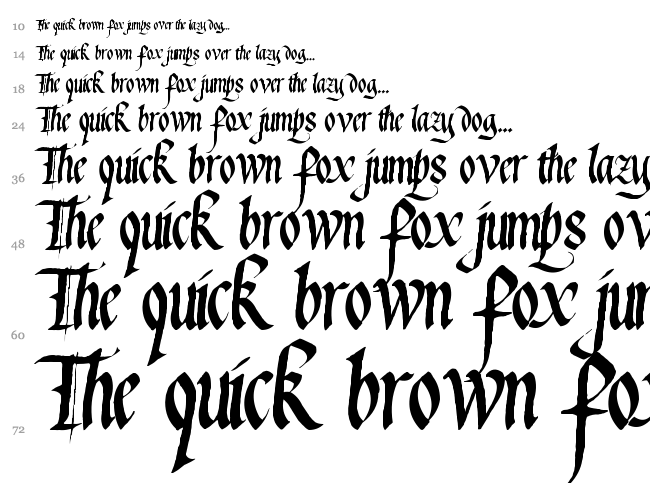 10 The quick brown fox jumps over the lazy dog...
14 The quick brown fox jumps over the lazy dog...
18 The quick brown fox jumps over the lazy dog...
24 The quick brown fox jumps over the lazy dog...
36 The quick brown fox jumps over the lazy
48 The quick brown fox jumps ov
60 The quick brown fox jun
72 The quick brown fo